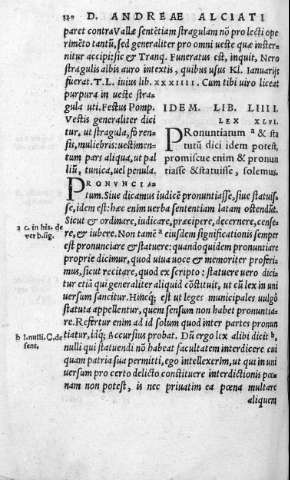 520 D. ANDREAE ALCIATI
paret contra Vallæ sentētiam stragulam nō pro lecti ope
rimēto tantū, sed generaliter pro omni ueste quæ inster
nitur accipi: sic & Tranq. Funeratus est, inquit, Nero
stragulis albis auro intextis, quibus usus Kl. Ianuarijs
fuerat. T.L. iuius lib. XXXIIII. Cum tibi uiro liceat
purpura in ueste stra
gula uti. Festus Pomp.
Vestis generaliter dici
tur, ut stragula, forēn
sis, muliebris: uestimen
tum pars aliqua, ut pal
liū, tunica, uel penula.
IDEM. LIB. LIIII.
LEX XLVI.
PRonuntiatum a & sta
tutū dici idem potest,
promiscue enim & pronun
tiasse & statuisse, solemus.
PRONVNCIA-
tum. Siue dicamus iudicē pronuntiasse, siue statuiss
se, idem est: hæc enim uerba sententiam latam ostendūt.
Sicut & ordinare, iudicare, præcipere, decernere, cense
re, & iubere. Non tamē a eiusdem significationis semper
est pronunciare & statuere: quandoquidem pronuntiare
proprie dicimur, quod uiua uoce & memoriter proferi
mus, sicut recitare, quod ex scripto: statuere uero dici
tur etiā qui generaliter aliquid cōstituit, ut cū lex in uni
uersum sancitur. Hincq; est ut leges municipales uulgò
statuta appellentur, quem sensum non habet pronuntia
re. Refertur enim ad id solum quod inter partes pronun
tiatur, idq; Accursius probat. Dū ergo lex alibi dicit b,
nulli qui statuendi nō habeat facultatem interdicere cui
quam patria sua permitti, ego intellexerim, ut qua in uni
uersum pro certo delicto constituere interdictionis pœ
nam non potest, is nec priuatim ea pœna multare
aliquem
a c. in his. de
ver b. sig.
b l. nulli. C. de
sent.